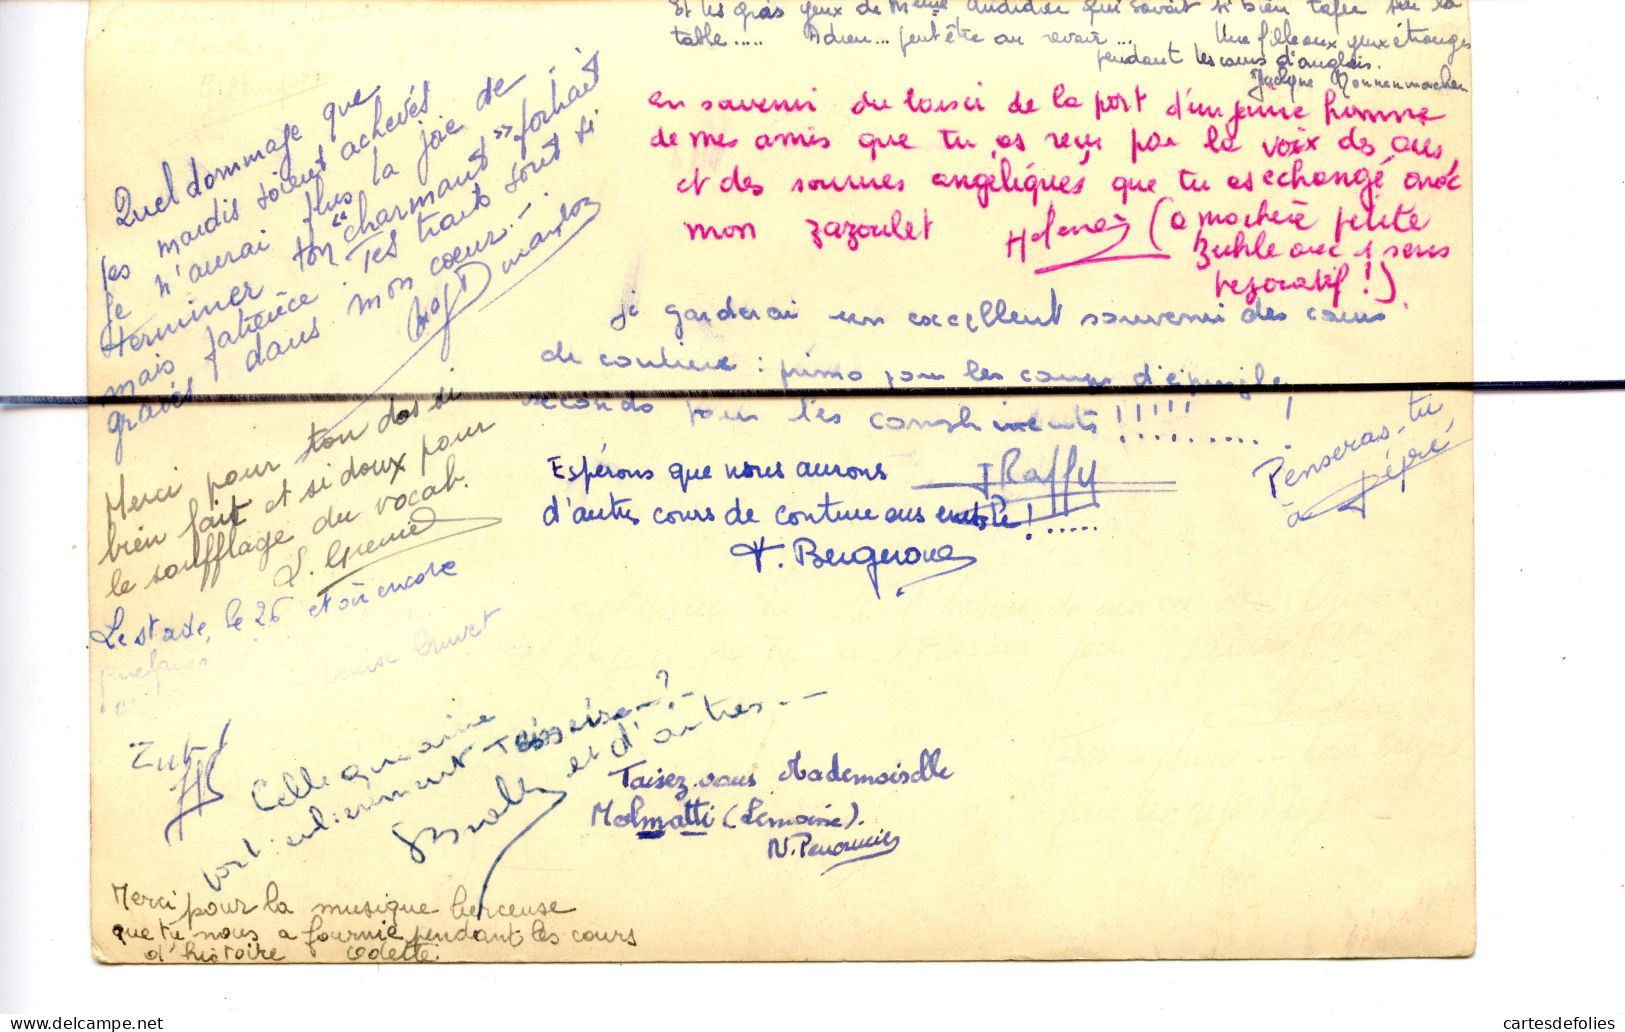 Et les gros yeux de Mme qui savait si bien taper sur la
table..... Adieu... peut être au revoir... Une fille aux yeux étranges
pendant les cours d'anglais.
Jaclyne
en souvenir du loisir de la part d'un jeune homme
de mes amis que tu as reçu par la voix des airs
et des sourires angéliques que tu as échangé avec
mon zazoulet Helene (a ma chère petite
avec 1 sens
pejoratif!)
Quel dommage que
les mardis soient achevés
Je n'aurai plus la joie de
terminer ton "charmant" portrait
mais patience. Tes traits sont si
gravés dans mon coeur!
Je garderai un excellent souvenir des cours
de couture : primo pour les coups d'épingle,
secondo pour les !!!!!.........!
Penseras-tu
à pépré
Merci pour ton dos si
bien fait et si doux pour
le soufflage du vocab.
Espérons que nous aurons
J Raffy
d'autres cours de couture ensemble!.....
Le stade, le 26 et où encore
quelques
Zut!
Celle qui aime
particulièrement Teisseire-?
et d'autres--
Taisez-vous Mademoiselle
Molmatti (Lemoine).
Merci pour la musique berceuse
que tu nous a fournie, pendant les cours
d'histoire Odette.
delcampe.net
cartesdefolies